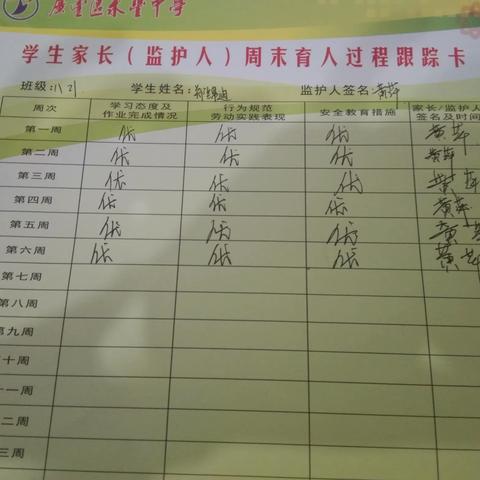 学生家长（监护人）周末育人过程跟踪卡
班级: 学生姓名: 监护人签名:黄萍
周次 学习态度及作业完成情况 行为规范劳动实践表现 安全教育措施 家长/监护人签名及时间
第一周 优 优 优 黄萍
第二周 优 优 优 黄萍
第三周 优 优 优 黄萍
第四周 优 优 优 黄萍
第五周 优 优 优 黄萍
第六周 优 优 优 黄萍
第七周
第八周
第九周
十周
十一周
二周
三周